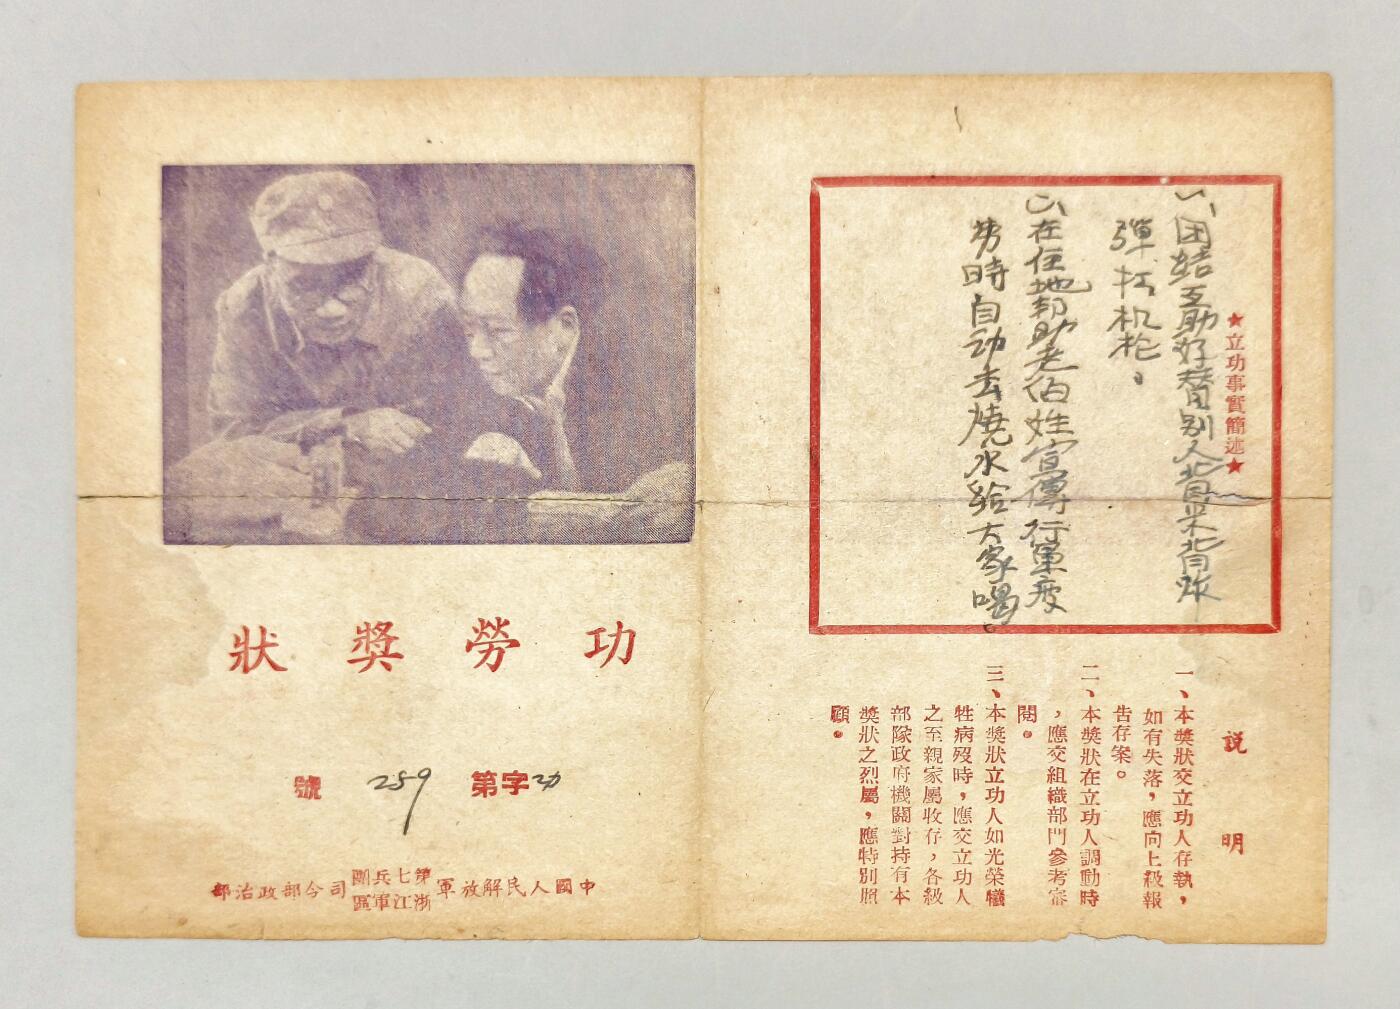 ★立功事實簡述★
(1)、团结互助好替别人背米背炸
彈扛机枪。
(2)、在住地帮助老伯姓宣傳行軍疲
劳時自动去燒水給大家喝。
說明
一、本獎狀交立功人存執，
如有失落，應向上級報
告存案。
二、本獎狀在立功人調動時
，應交組織部門參考審
閱。
三、本獎狀立功人如光榮犧
牲病歿時，應交立功人
之至親家屬收存，各級
部隊政府機關對持有本
獎狀之烈屬，應特別照
顧。
功勞獎狀
功字第259號
中國人民解放軍第七兵團浙江軍區司令部政治部